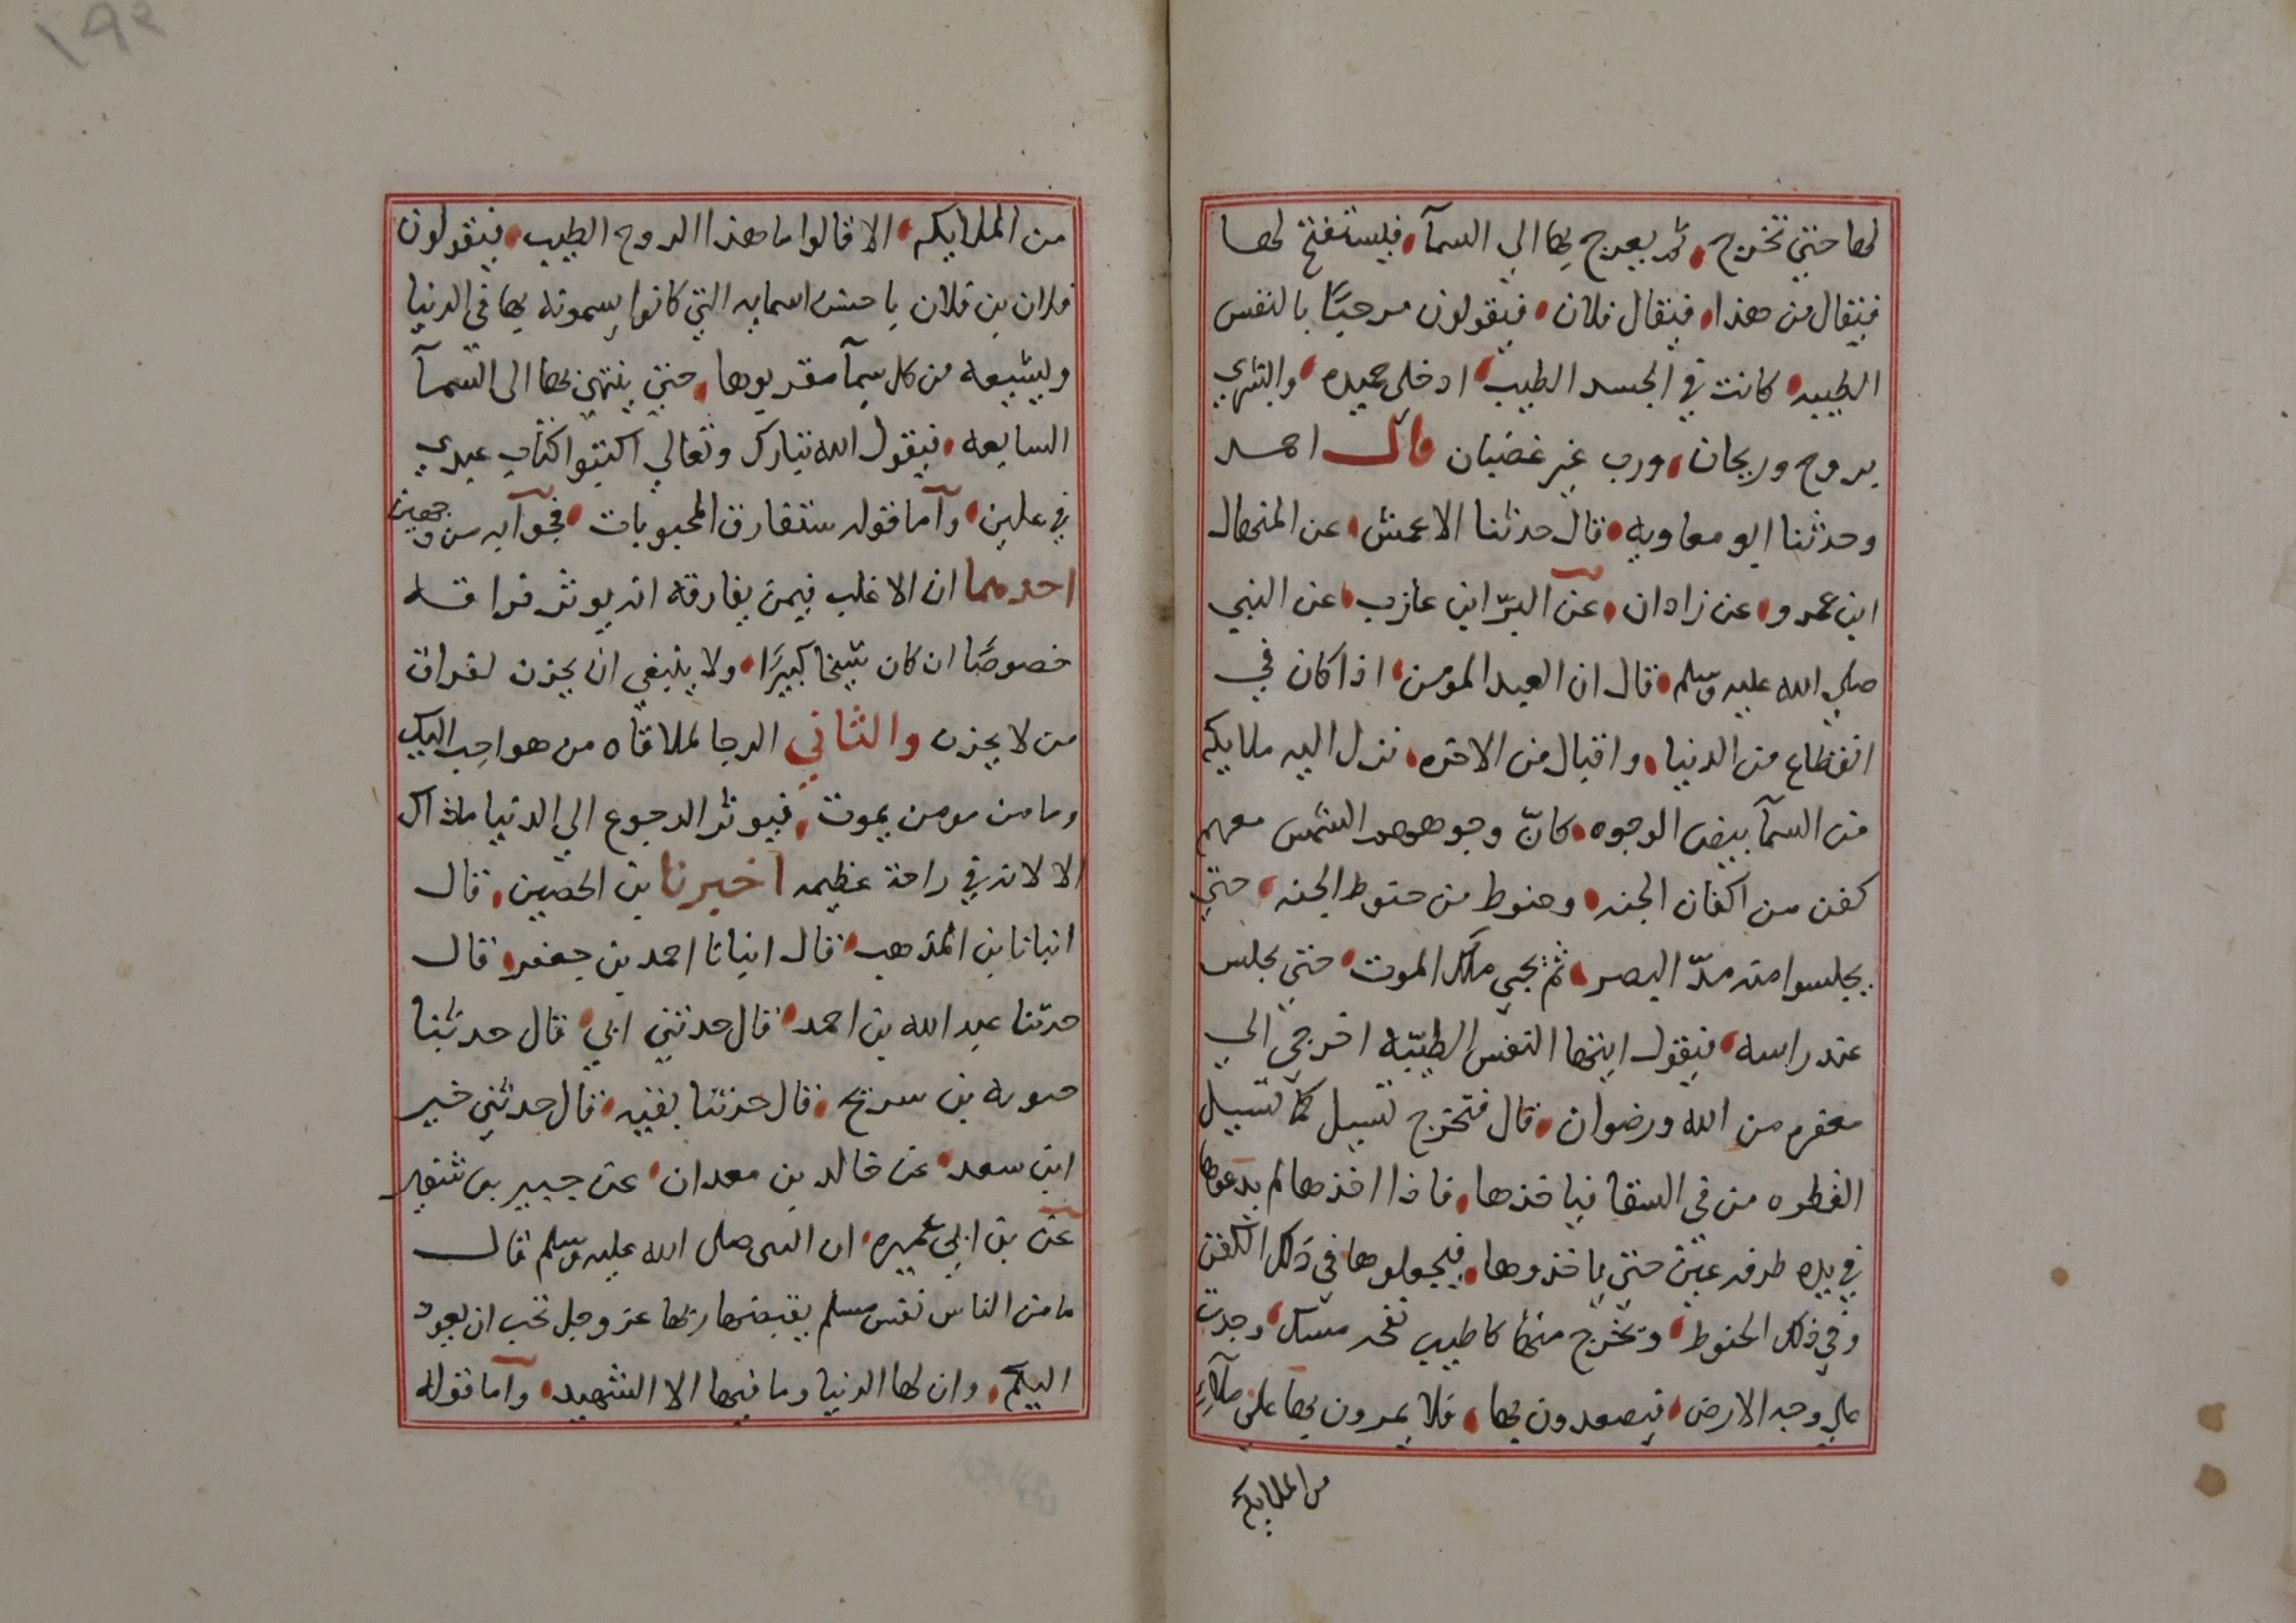 لها حتى تخرج، ثم يعرج بها الى السمآ، فيستفتح لها
فيقال من هذا، فيقال فلان، فيقولون مرحبًا بالنفس
الطيبه، كانت في الجسد الطيب، ادخلي حميده، وابشري
بروح وريحان، ورب غير غضبان قال احمد
وحدثنا ابو معاويه، قال حدثنا الاعمش، عن المنهال
ابن عمرو، عن زاذان، عن البرّا ابن عازب، عن النبي
صلي الله عليه وسلم، قال ان العبد المومن، اذا كان في
انقطاع من الدنيا، واقبال من الاخره، نزل اليه ملايكه
من السمآ بيض الوجوه، كانّ وجوههم الشمس معهم
كفن من اكفان الجنه، وحنوط من حنوط الجنه، حتي
يجلسوا منه مدّ البصر، ثم يجي ملك الموت، حتي يجلس
عند راسه، فيقول ايتها النفس الطيّبه اخرجي الي
مغفره من الله ورضوان، قال فتخرج تسيل كما تسيل
القطره من في السقا فياخذها، فاذا اخذها لم يدعوها
في يده طرفه عين حتي ياخذوها، فيجعلوها في ذلك الكفن
وفي ذلك الحنوط، ويخرج منها كاطيب نفحه مسك، وجدت
علي وجه الارض، فيصعدون بها، فلا يمرون بها علي ملاءٍ
من الملايكه
من الملايكه، الا قالوا ما هذا الروح الطيب، فيقولون
فلان بن فلان باحسن اسمايه التي كانوا يسمونه بها في الدنيا
ويشيعه من كل سمآ مقربوها، حتي ينتهي بها الى السمآ
السابعه، فيقول الله تبارك وتعالي اكتبوا كتاب عبدي
في علين، وآما قوله ستفارق المحبوبات، فجوآبه من وجهين
احدهما ان الاغلب فيمن يفارقه انه يوثر فراقه
خصوصًا ان كان شيخا كبيرًا، ولا ينبغي ان يحزن لفراق
من لا يحزن والثاني الرجا لملاقاه من هو احب اليك
وما من مومن يموت، فيوثر الرجوع الي الدنيا وما ذاك
الا لانه في راحة عظيمه اخبرنا بن الحصين، قال
انبانا بن المذهب، قال انبانا احمد بن جعفر، قال
حدثنا عبد الله بن احمد، قال حدثني ابي، قال حدثنا
حيوه بن سريح، قال حدثنا بقيه، قال حدثني خبير
ابن سعد، عن خالد بن معدان، عن جبير بن نفير
عن بن ابي عميره، ان النبي صلى الله عليه وسلم قال
ما من الناس نفس مسلم يقبضها ربها عز وجل تحب ان يعود
اليكم، وان لها الدنيا وما فيها الا الشهيد، وآما قوله